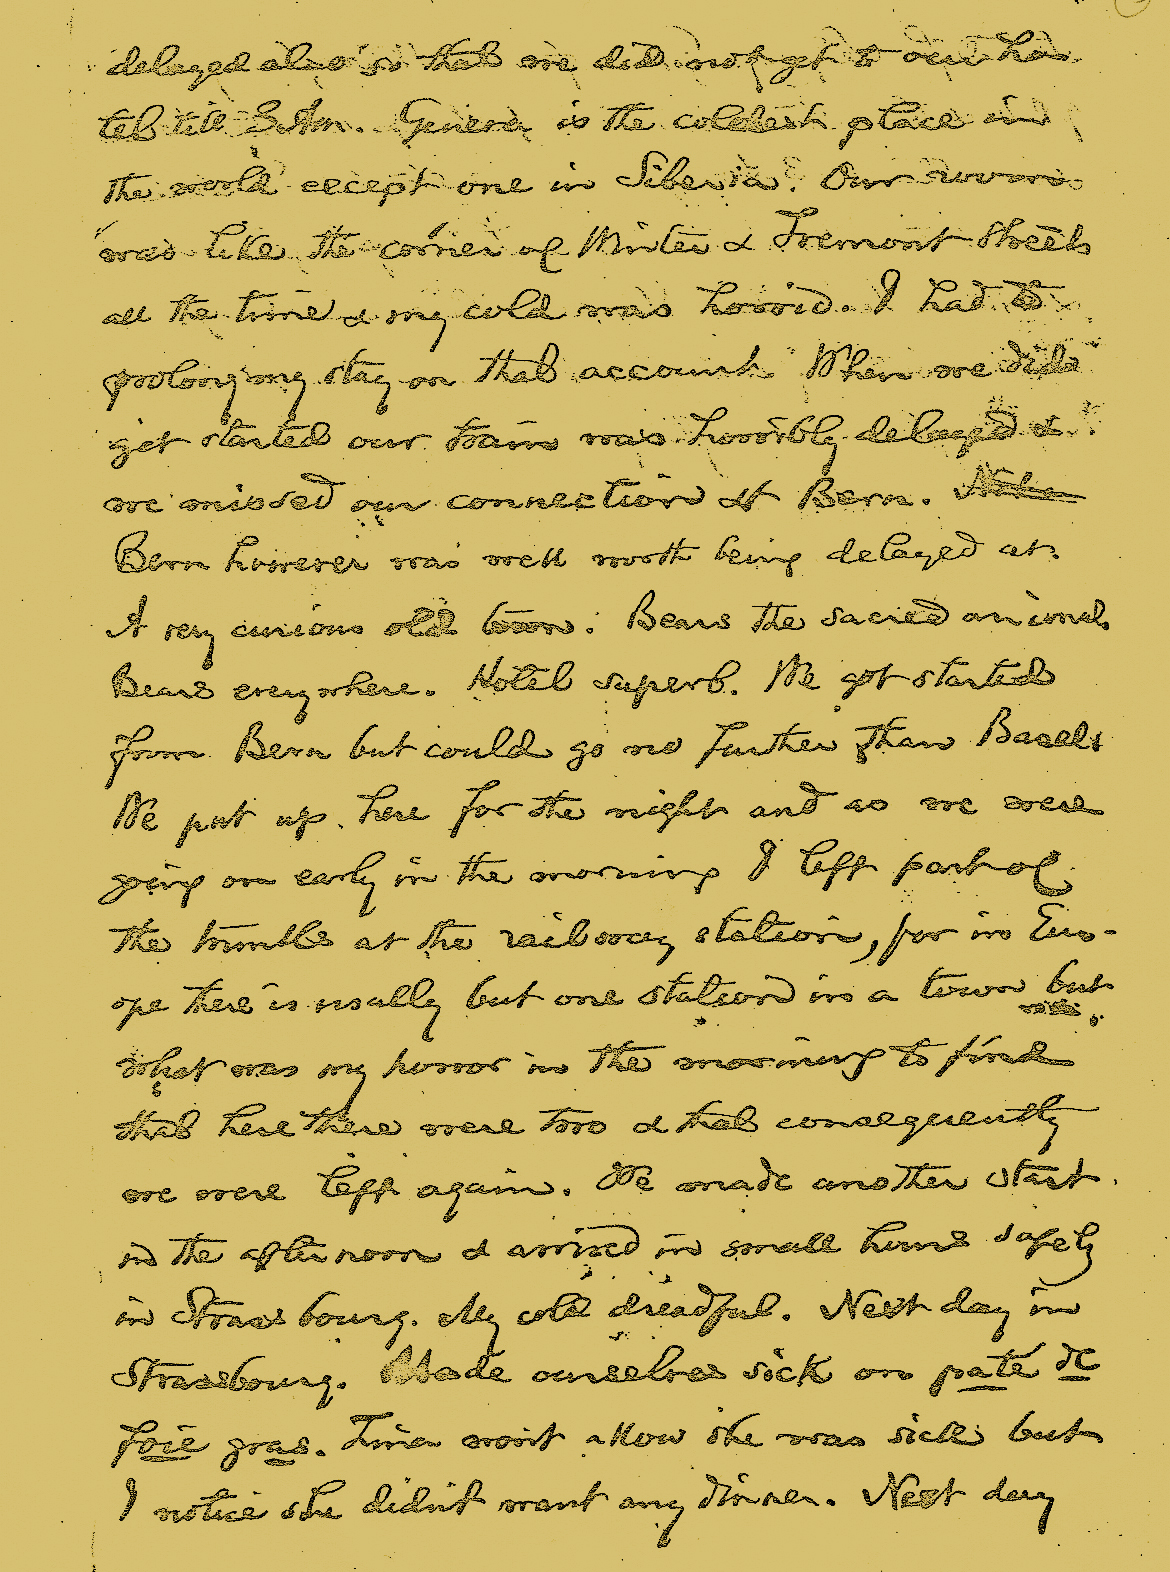 delayed also so that we did not get to our ho-
tel till 3 A.m. Geneva is the coldest place in
the world except one in Siberia. Our rooms
was like the corner of Winter & Tremont Streets
all the time & my cold was horrid. I had to
prolong my stay on that account. When we did
get started our train was horribly delayed &
we missed our connection at Bern.
Bern however was well worth being delayed at.
A very curious old town: Bears the sacred animals
Bears everywhere. Hotel superb. We got started
from Bern but could go no further than Basel.
We put up here for the night and as we were
going on early in the morning I left part of
the trunks at the railway station, for in Eur-
ope there is usually but one station in a town but
what was my horror in the morning to find
that here there were two & that consequently
we were left again. We made another start
in the afternoon & arrived in small hours safely
in Strassbourg. My cold dreadful. Next day in
Strassbourg. Made ourselves sick on paté de
foie gras. Lina won't allow she was sick but
I notice she didn't want any dinner. Next day